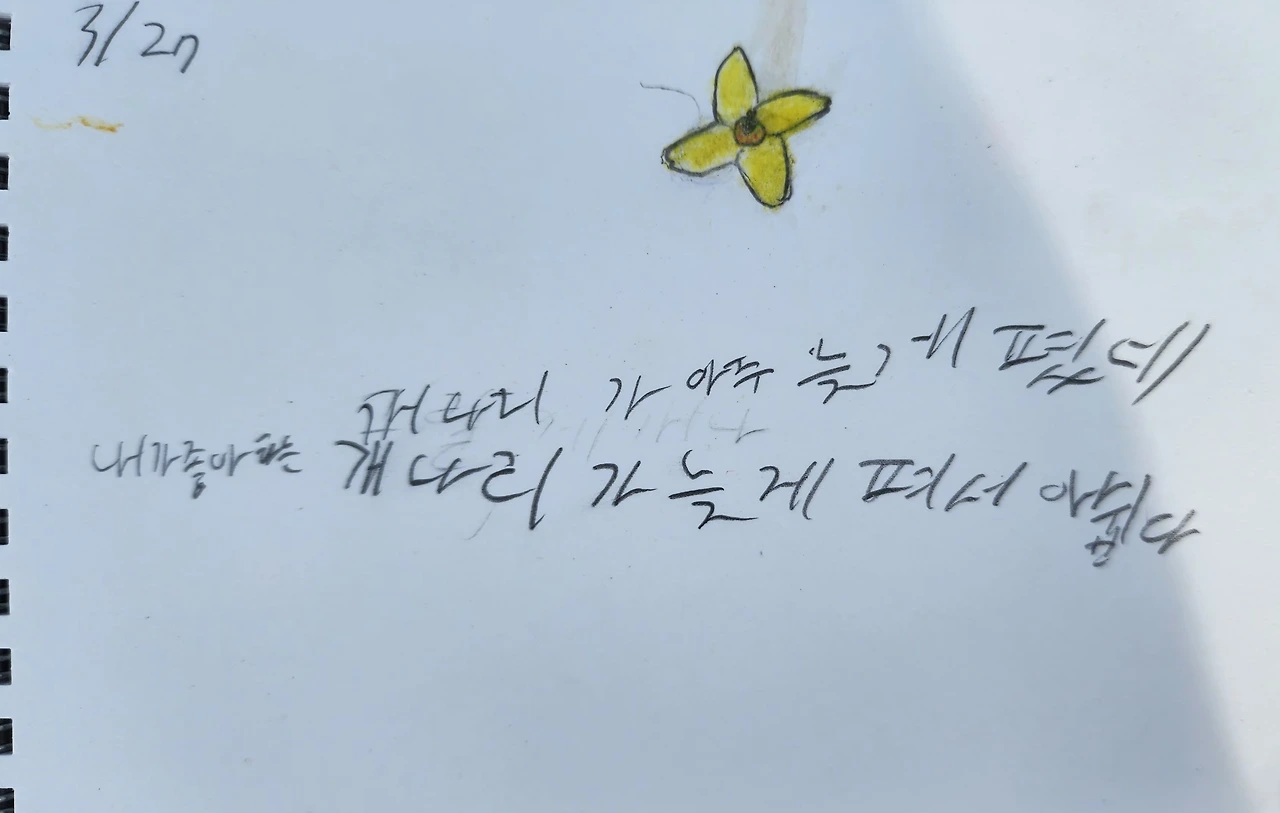 3/27
개나리 가 아주 늦게 폈데
내가좋아하는 개나리 가 늦게 펴서 아쉽다